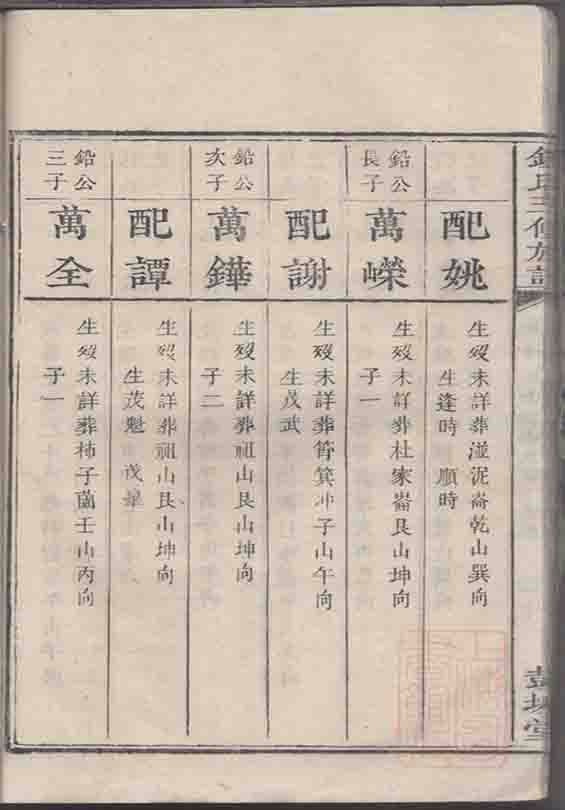 鍾氏三修族譜
彭城堂
配姚
生歿未詳葬湴泥崙乾山巽向
生逢時 順時
鉛公
長子
萬嶸
生歿未詳葬杜家崙艮山坤向
子一
配謝
生歿未詳葬筲箕冲子山午向
生茂武
鉛公
次子
萬鏵
生歿未詳葬祖山艮山坤向
子二
配譚
生歿未詳葬祖山艮山坤向
生茂魁 茂
鉛公
三子
萬全
生歿未詳葬柿子薗壬山丙向
子一